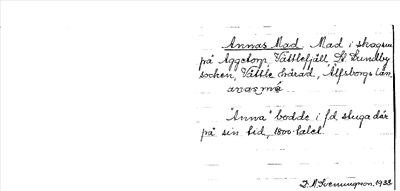 Annas Mad Mad i skogen
på Aggetorp, Vättlefjäll St. Lundby
socken, Vättle härad, Älfsborgs län.
anas má
"Anna" bodde i f.d. stuga där
på sin tid, 1800-talet.
D. A. Svenningson. 1933